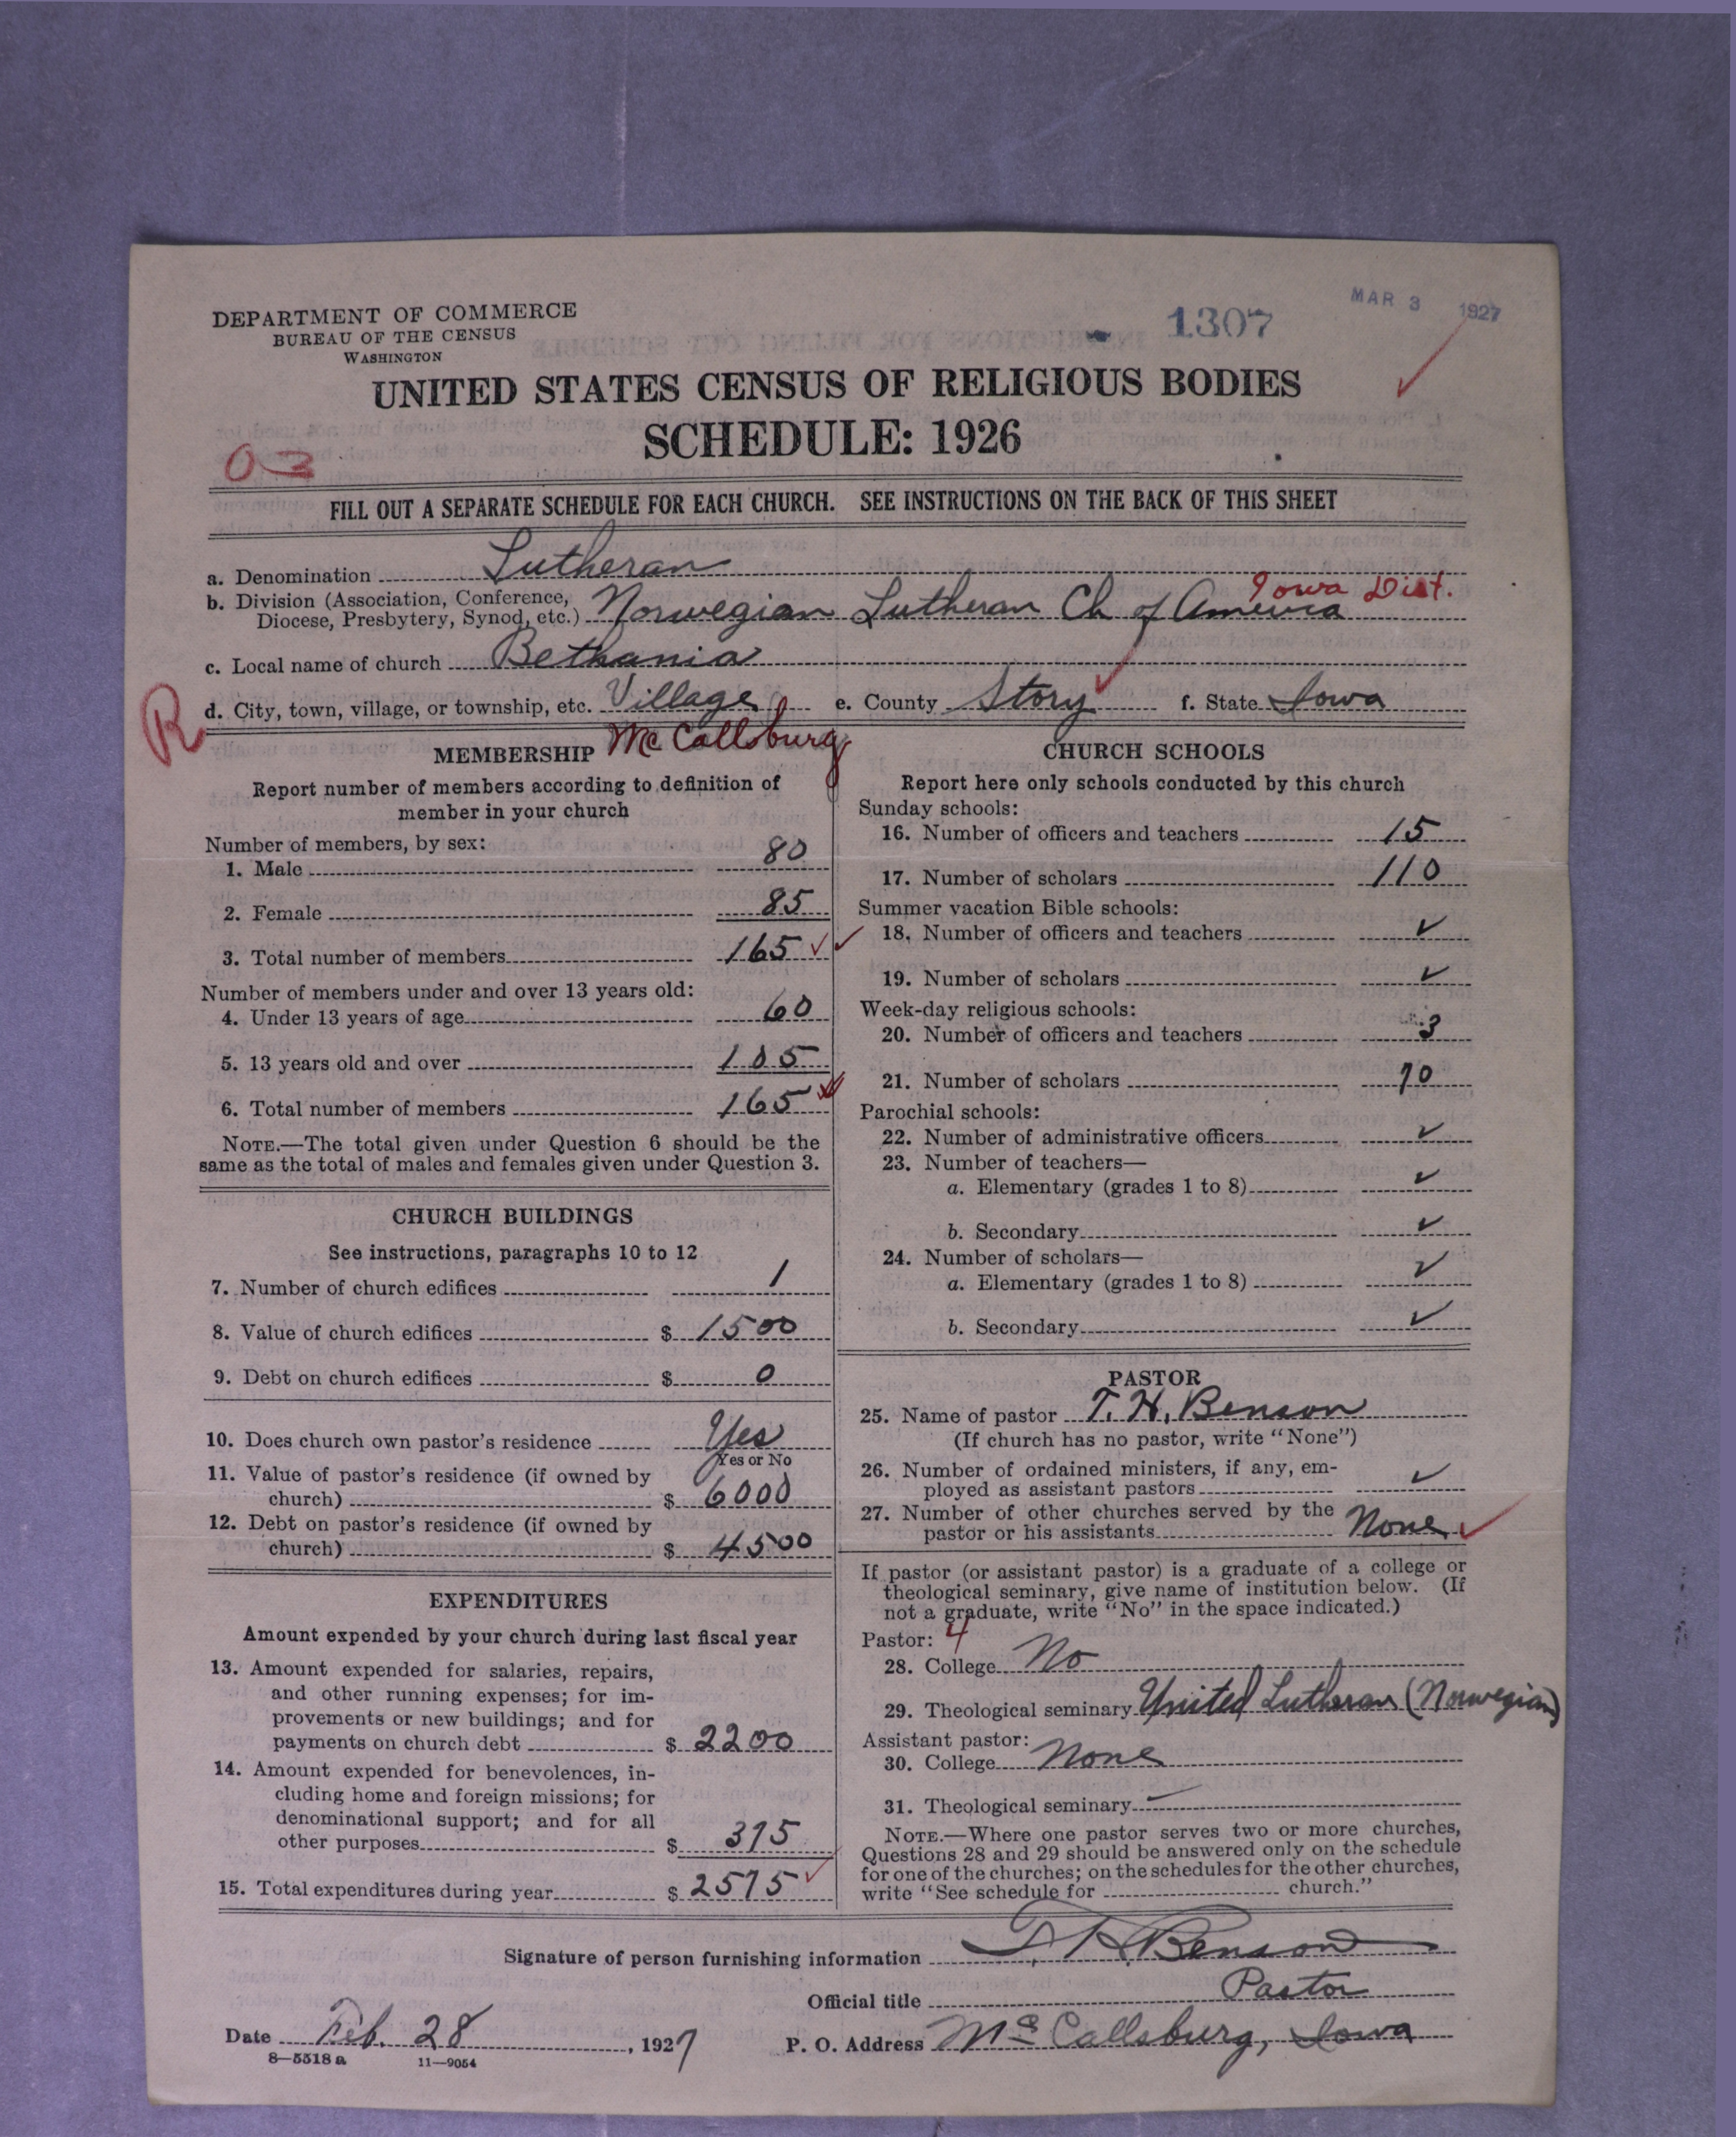 DEPARTMENT OF COMMERCE
BUREAU OF THE CENSUS
WASHINGTON
1307
MAR 3 1927
UNITED STATES CENSUS OF RELIGIOUS BODIES
SCHEDULE: 1926
FILL OUT A SEPARATE SCHEDULE FOR EACH CHURCH. SEE INSTRUCTIONS ON THE BACK OF THIS SHEET
a. Denomination Lutheran
b. Division (Association, Conference, Diocese, Presbytery, Synod, etc.) Norwegian Lutheran Ch of America Iowa Dist.
c. Local name of church Bethania
R
d. City, town, village, or township, etc. Village e. County Story f. State Iowa
McCallsburg
MEMBERSHIP
Report number of members according to definition of
member in your church
Number of members, by sex:
1. Male 80
2. Female 85
3. Total number of members 165 ✓✓
Number of members under and over 13 years old:
4. Under 13 years of age 60
5. 13 years old and over 105
6. Total number of members 165
NOTE.—The total given under Question 6 should be the
same as the total of males and females given under Question 3.
CHURCH BUILDINGS
See instructions, paragraphs 10 to 12
7. Number of church edifices 1
8. Value of church edifices $ 1500
9. Debt on church edifices $ 0
10. Does church own pastor's residence Yes
Yes or No
11. Value of pastor's residence (if owned by
church) $ 6000
12. Debt on pastor's residence (if owned by
church) $ 4500
EXPENDITURES
Amount expended by your church during last fiscal year
13. Amount expended for salaries, repairs,
and other running expenses; for im-
provements or new buildings; and for
payments on church debt $ 2200
14. Amount expended for benevolences, in-
cluding home and foreign missions; for
denominational support; and for all
other purposes $ 375
15. Total expenditures during year $ 2575 ✓
CHURCH SCHOOLS
Report here only schools conducted by this church
Sunday schools:
16. Number of officers and teachers 15
17. Number of scholars 110
Summer vacation Bible schools:
18. Number of officers and teachers ✓
19. Number of scholars ✓
Week-day religious schools:
20. Number of officers and teachers 3
21. Number of scholars 70
Parochial schools:
22. Number of administrative officers ✓
23. Number of teachers—
a. Elementary (grades 1 to 8) ✓
b. Secondary ✓
24. Number of scholars—
a. Elementary (grades 1 to 8) ✓
b. Secondary ✓
PASTOR
25. Name of pastor T. H. Benson
(If church has no pastor, write "None")
26. Number of ordained ministers, if any, em-
ployed as assistant pastors ✓
27. Number of other churches served by the
pastor or his assistants None ✓
If pastor (or assistant pastor) is a graduate of a college or
theological seminary, give name of institution below. (If
not a graduate, write "No" in the space indicated.)
Pastor: 4
28. College No
29. Theological seminary United Lutheran (Norwegian)
Assistant pastor:
30. College None
31. Theological seminary —
NOTE.—Where one pastor serves two or more churches,
Questions 28 and 29 should be answered only on the schedule
for one of the churches; on the schedules for the other churches,
write "See schedule for church."
Signature of person furnishing information T. H. Benson
Official title Pastor
Date Feb. 28, 1927 P. O. Address McCallsburg, Iowa
8—5518 a 11—9054